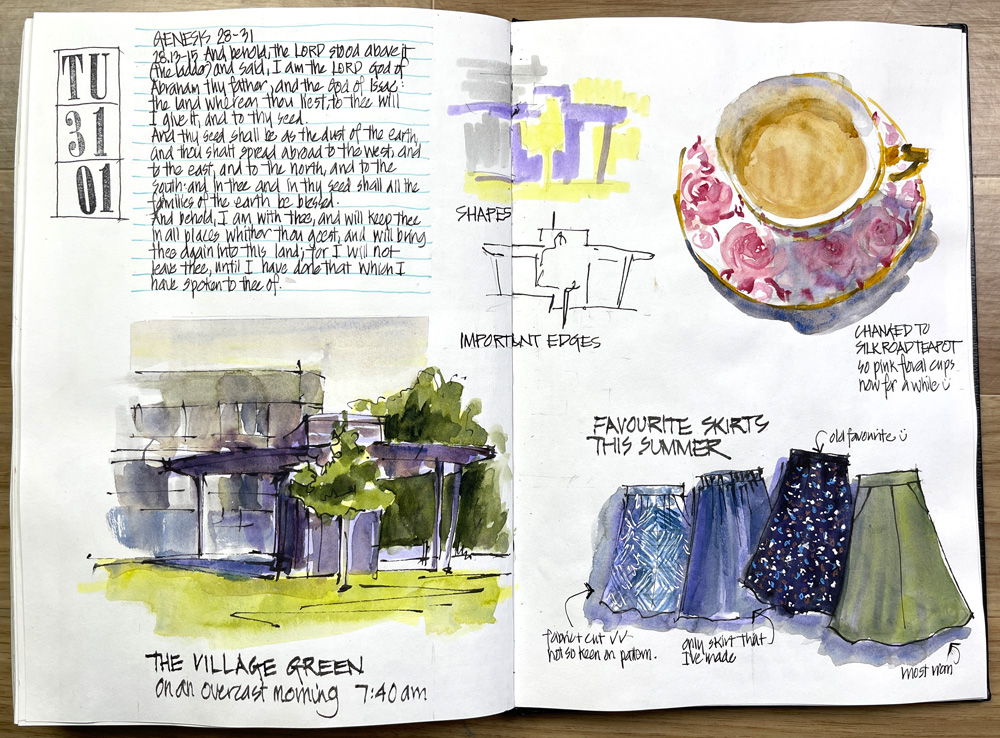 TU
31
01
GENESIS 28-31
28.13-15 And behold, the LORD stood above it
(the ladder) and said, I am the LORD God of
Abraham thy father, and the God of Isaac:
the land whereon thou liest, to thee will
I give it, and to thy seed.
And thy seed shall be as the dust of the earth,
and thou shalt spread abroad to the west, and
to the east, and to the north, and to the
south: and in thee and in thy seed shall all the
families of the earth be blessed.
And behold, I am with thee, and will keep thee
in all places whither thou goest, and will bring
thee again into this land; for I will not
leave thee, until I have done that which I
have spoken to thee of.
THE VILLAGE GREEN
on an overcast morning 7:40 am.
SHAPES
IMPORTANT EDGES
CHANGED TO
SILK ROAD TEAPOT
so pink floral cups
now for a while
FAVOURITE SKIRTS
THIS SUMMER
old favourite
fabric cut
not so keen on pattern.
only skirt that
I've made
most worn